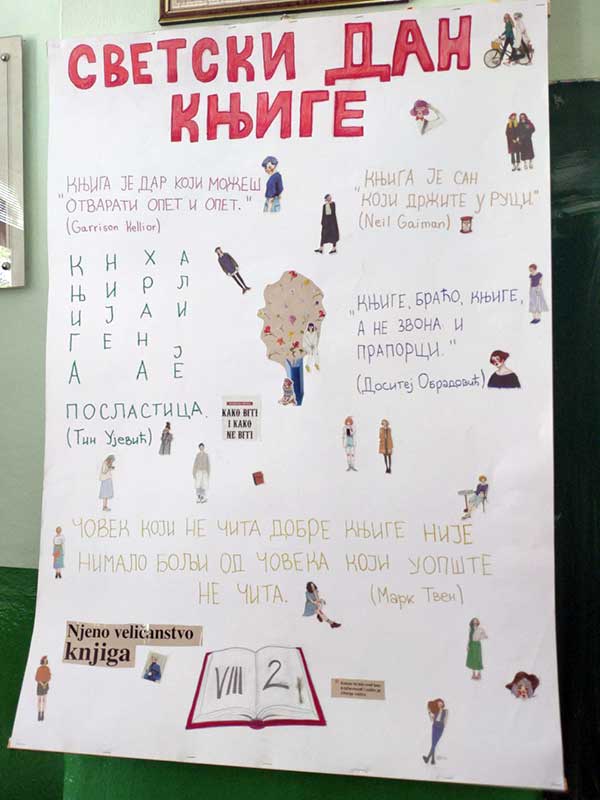 СВЕТСКИ ДАН
КЊИГЕ
"КЊИГА ЈЕ ДАР КОЈИ МОЖЕШ
ОТВАРАТИ ОПЕТ И ОПЕТ."
(Garrison Kellior)
„КЊИГА ЈЕ САН
КОЈИ ДРЖИТЕ У РУЦИ"
(Neil Gaiman)
КЊИГА
НИЈЕ
ХРАНА
АЛИ ЈЕ
ПОСЛАСТИЦА.
(Тин Ујевић)
„КЊИГЕ, БРАЋО, КЊИГЕ,
А НЕ ЗВОНА И
ПРАПОРЦИ."
(Доситеј Обрадовић)
KAKO BITI
I KAKO
NE BITI
ЧОВЕК КОЈИ НЕ ЧИТА ДОБРЕ КЊИГЕ НИЈЕ
НИМАЛО БОЉИ ОД ЧОВЕКА КОЈИ УОПШТЕ
НЕ ЧИТА. (Марк Твен)
Njeno veličanstvo
knjiga
VIII 2